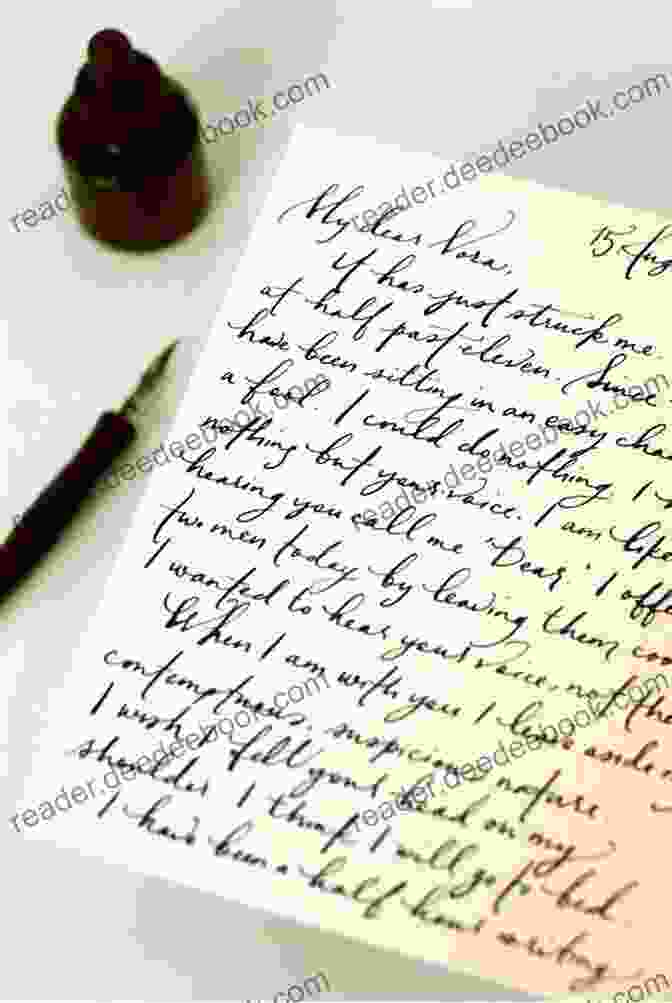 15 Aug
My dear Nora,
It has just struck me.
at half past eleven. Since
have been sitting in an easy chai
a fool. I could do nothing. I
nothing but your voice. I am like
hearing you call me 'Dear.' I offe
two men today by leaving them coo
I wanted to hear your voice, not the
When I am with you I leave aside
contemptuous, suspicious nature.
I wish I felt your head on my
shoulder. I think I will go to bed.
I have been a half-hour writing
reader.deedeebook.com
reader.deedeebook.com
reader.deedeebook.com
reader.deedeebook.com
reader.deedeebook.com
reader.deedeebook.com
reader.deedeebook.com
reader.deedeebook.com